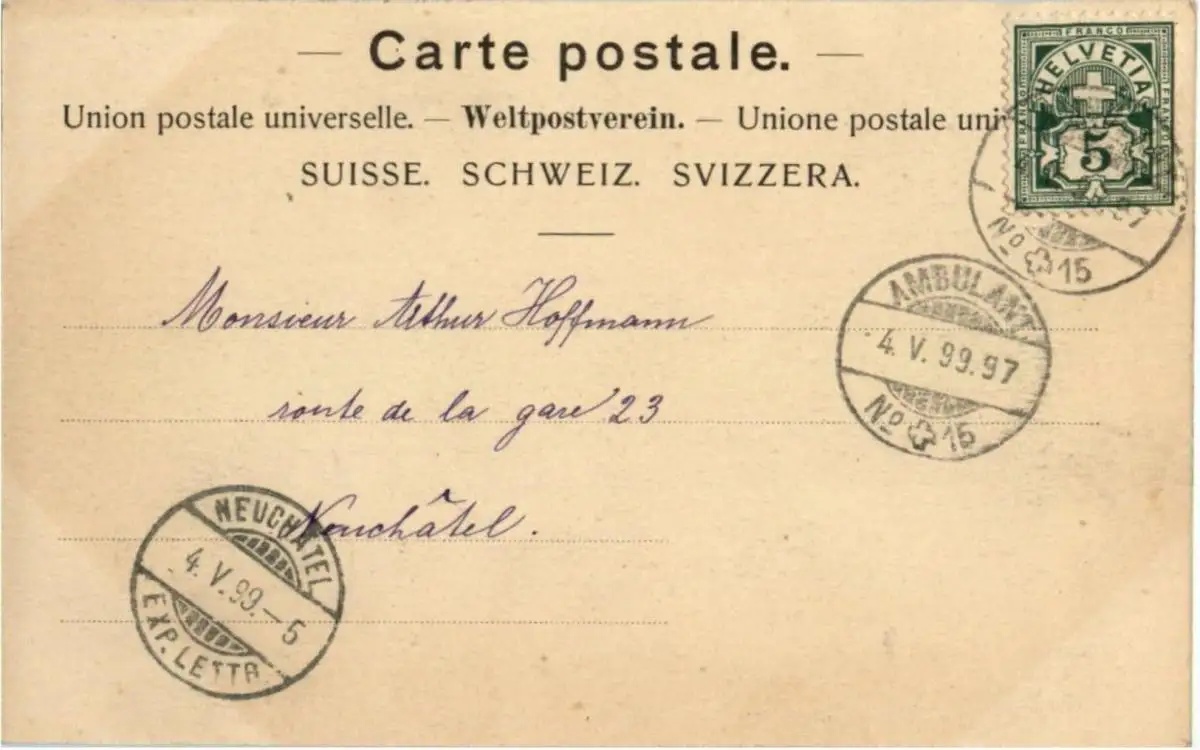 — Carte postale. —
Union postale universelle. — Weltpostverein. — Unione postale uni
SUISSE. SCHWEIZ. SVIZZERA.
FRANCO
HELVETIA
FRANCO
5
No 15
AMBULANT.
4. V. 99.97
No 15
Monsieur Arthur Hoffmann
route de la gare 23
Neuchâtel.
NEUCHATEL
4. V. 99.—5
EXP. LETTR.